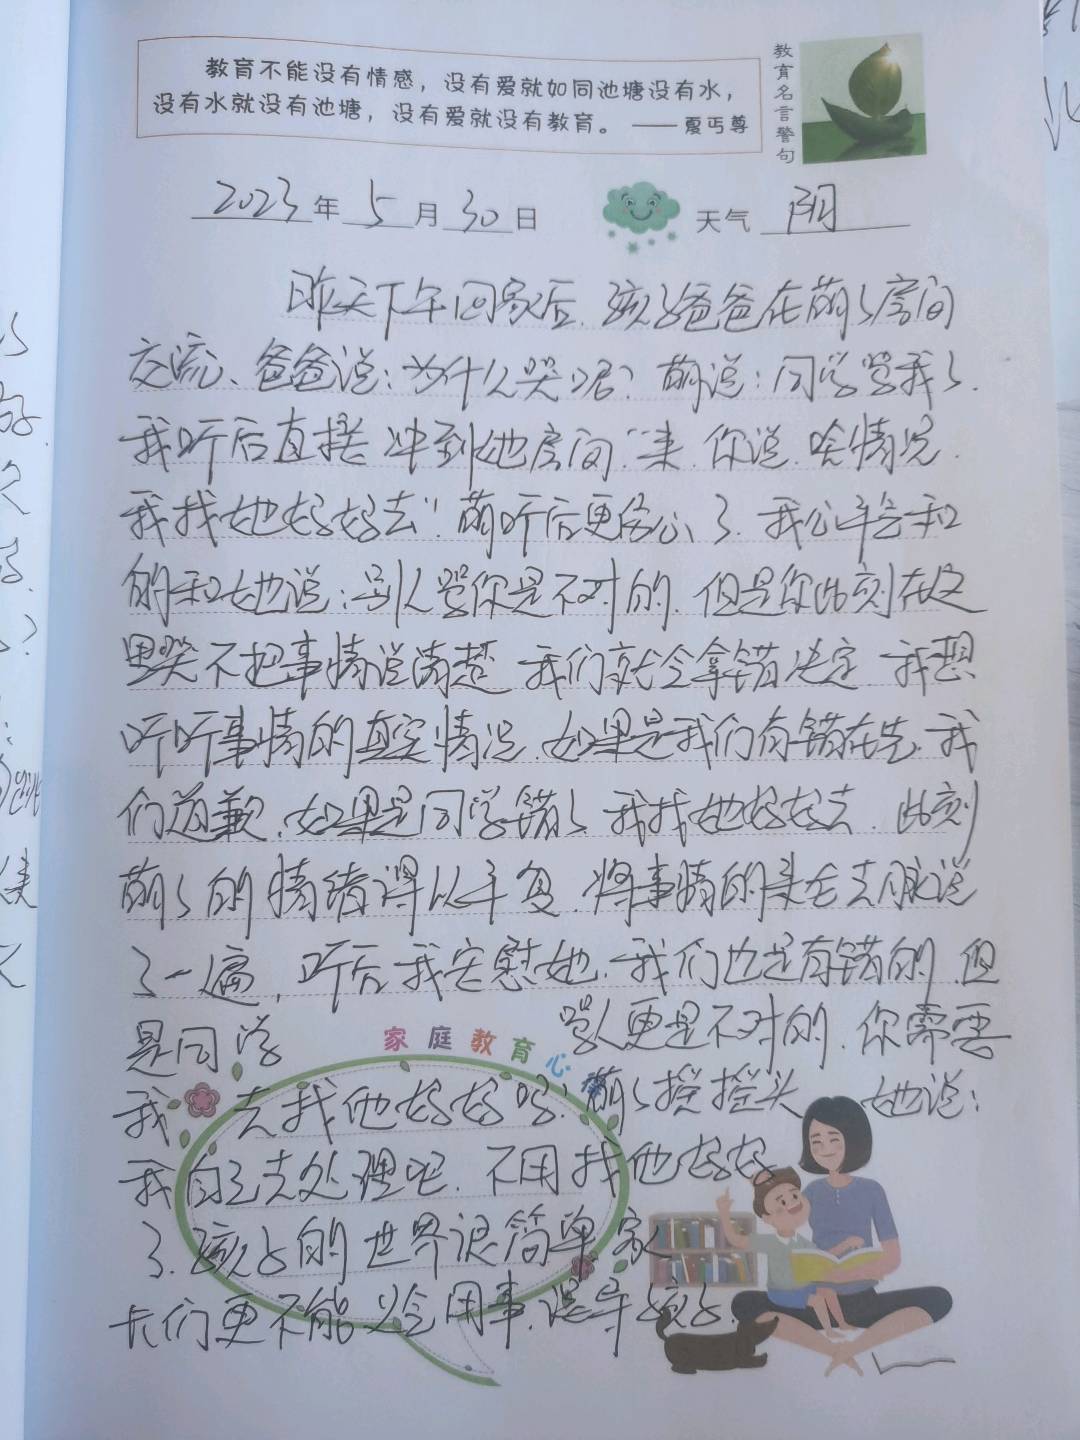 教育不能没有情感，没有爱就如同池塘没有水，
没有水就没有池塘，没有爱就没有教育。 ——夏丏尊
教育名言警句
2023年5月30日 天气 阴
昨天下午回家后，孩子爸爸在萌萌房间
交流、爸爸说：为什么哭呢？萌说：同学骂我了.
我听后直接冲到她房间："来.你说.啥情况.
我找她妈妈去"！萌听后更伤心了.我心平气和
的和她说：别人骂你是不对的.但是你此刻在这
里哭不把事情说清楚 我们就会拿错决定.我想
听听事情的真实情况.如果是我们有错在先.我
们道歉.如果是同学错了 我找她妈妈去.此刻
萌萌的情绪得以平复.将事情的来龙去脉说
了一遍，听后我安慰她.我们也是有错的.但
是同学 骂人更是不对的.你需要
家庭教育心
我 去找他妈妈吗？萌萌摇摇头 她说：
我自己去处理吧.不用找他妈妈
了.孩子的世界很简单 家
长们更不能义气用事.误导孩子.